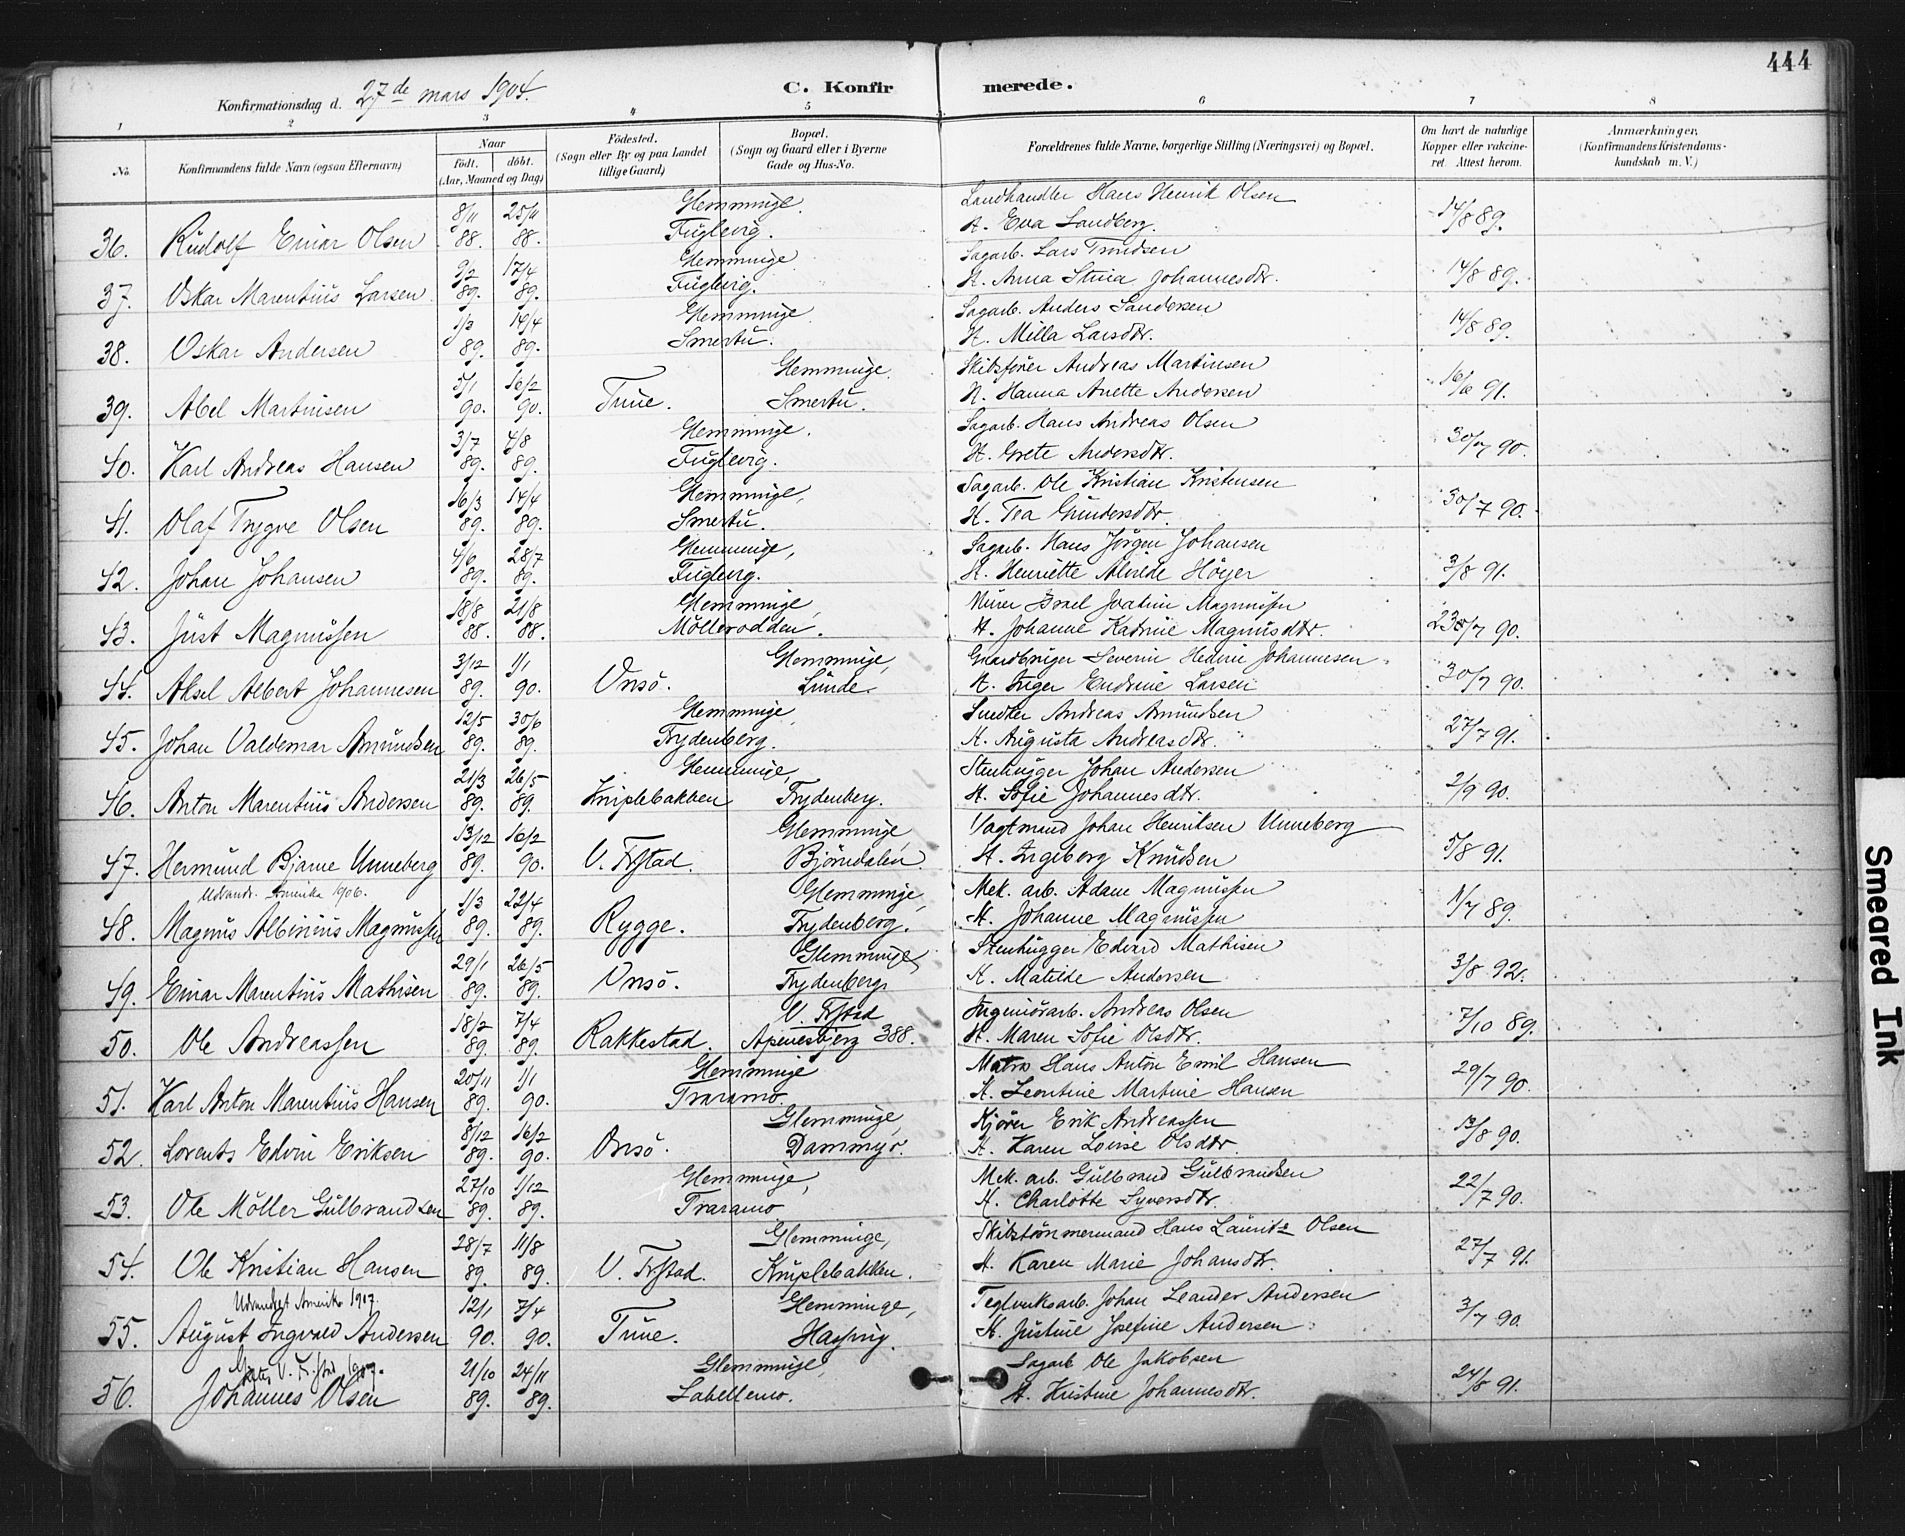 444
Konfirmationsdag d. 27de mars 1904.
C. Konfirmerede.
1 2 3 4 5 6 7 8
No.
Konfirmandens fulde Navn (ogsaa Efternavn)
Naar
födt. döbt.
(Aar, Maaned og Dag)
Födested.
(Sogn eller By og paa Landet
tillige Gaard)
Bopæl.
(Sogn og Gaard eller i Byerne
Gade og Hus-No.
Forældrenes fulde Navne, borgerlige Stilling (Næringsvei) og Bopæl.
Om havt de naturlige
Kopper eller vaccine-
ret. Attest herom.
Anmærkninger.
(Konfirmandens Kristendoms-
kundskab m. V.)
8/11 25/11 Glemminge. Landhandler Hans Henrik Olsen
36. Rudolf Einar Olsen 88. 88. Fuglevig. H. Eva Sandberg. 14/8 89.
9/2 17/4 Glemminge Sagarb. Lars Trondsen
37. Oskar Marentius Larsen. 89. 89. Fuglevig. H. Anna Stina Johannesdtr. 14/8 89.
1/3 14/4 Glemminge Sagarb. Anders Sandersen
38. Oskar Andersen 89. 89. Smertu. H. Milla Larsdtr. 14/8 89.
5/1 16/2 Glemminge. Skibsfører Andreas Martinsen
39. Abel Martinsen 90. 90. Tune. Smertu. H. Hanna Anette Andersen 16/6 91.
3/7 4/8 Glemminge. Sagarb. Hans Andreas Olsen
40. Karl Andreas Hansen 89. 89. Fuglevig. H. Grete Andersdtr. 30/7 90.
16/3 14/4 Glemminge, Sagarb. Ole Kristian Kristensen
41. Olaf Trygve Olsen 89. 89. Smertu. H. Tea Gundersdtr. 30/7 90.
4/6 28/7 Glemminge, Sagarb. Hans Jørgen Johansen
42. Johan Johansen 89. 89. Fuglevig. H. Henriette Alvilde Höyer 3/8 91.
18/8 21/8 Glemminge, Murer Israel Joakim Magnussen
43. Just Magnussen 88. 88. Mollerodden. H. Johanne Katrine Magnusdtr. 90.
3/12 1/1 Glemminge, Gaardbruger Severin Hedin Johannesen
44. Aksel Albert Johannesen 89. 90. Onsö. Lunde. H. Inger Endrine Larsen 30/7 90.
12/5 30/6 Glemminge, Snedker Andreas Amundsen
45. Johan Valdemar Amundsen 89. 89. Frydenberg. H. Augusta Andreasdtr. 27/7 91.
21/3 26/5 Glemminge, Stenhugger Johan Andersen
46. Anton Marentius Andersen 89. 89. Kniplebakken Frydenberg. H. Sofie Johannesdtr. 2/9 90.
13/12 16/2 Glemminge Vagtmand Johan Henriksen Unneberg
47. Hermund Bjarne Unneberg 89. 90. V. Frstad. Bjørndalen H. Ingeborg Knudsen 5/8 91.
Udvandr. Amerika 1906. 1/3 22/4 Glemminge, Mek. arb. Adam Magnussen
48. Magnus Albinius Magnussen 89. 89. Rygge. Frydenberg. H. Johanne Magnussen 1/7 89.
29/1 26/5 Glemminge, Stenhugger Edvard Mathisen
49. Einar Marentius Mathisen 89. 89. Onsö. Frydenberg H. Matilde Andersen 3/8 92.
18/2 7/4 V. Frstad Ingeniörarb. Andreas Olsen
50. Ole Andreassen 89. 89. Rakkestad. Apenesbjerg 388. H. Maren Sofie Olsdtr. 7/10 89.
20/11 1/1 Glemminge Matro Hans Anton Emil Hansen
51. Karl Anton Marentius Hansen 89. 90. Traramo. H. Leontine Martine Hansen 29/7 90.
8/12 16/2 Glemminge, Kjörer Erik Andreassen
52. Lorents Edvin Eriksen 89. 90. Onsö. Dammyr. H. Karen Lovise Olsdtr. 90.
27/10 1/12 Glemminge, Mek. arb. Gulbrand Gulbrandsen
53. Ole Möller Gulbrandsen 89. 89. Traramo H. Charlotte Syversdtr. 22/7 90.
28/7 11/8 Glemminge, Skibstömmermand Hans Lauritz Olsen
54. Ole Kristian Hansen 89. 89. V. Frstad. Kniplebakken. H. Karen Marie Johansdtr. 27/7 91.
Udvandret Amerika 1907. 12/1 7/4 Glemminge, Teglverksarb. Johan Leander Andersen
55. August Ingvald Andersen 90. 90. Tune. Hassing. H. Justine Josefine Andersen 3/7 90.
V. Fr.stad 1907. 21/10 24/11 Glemminge, Sagarb Ole Jakobsen
56. Johannes Olsen 89. 89. Labellemo. H. Kristine Johannesdtr. 24/8 91.
Smeared Ink